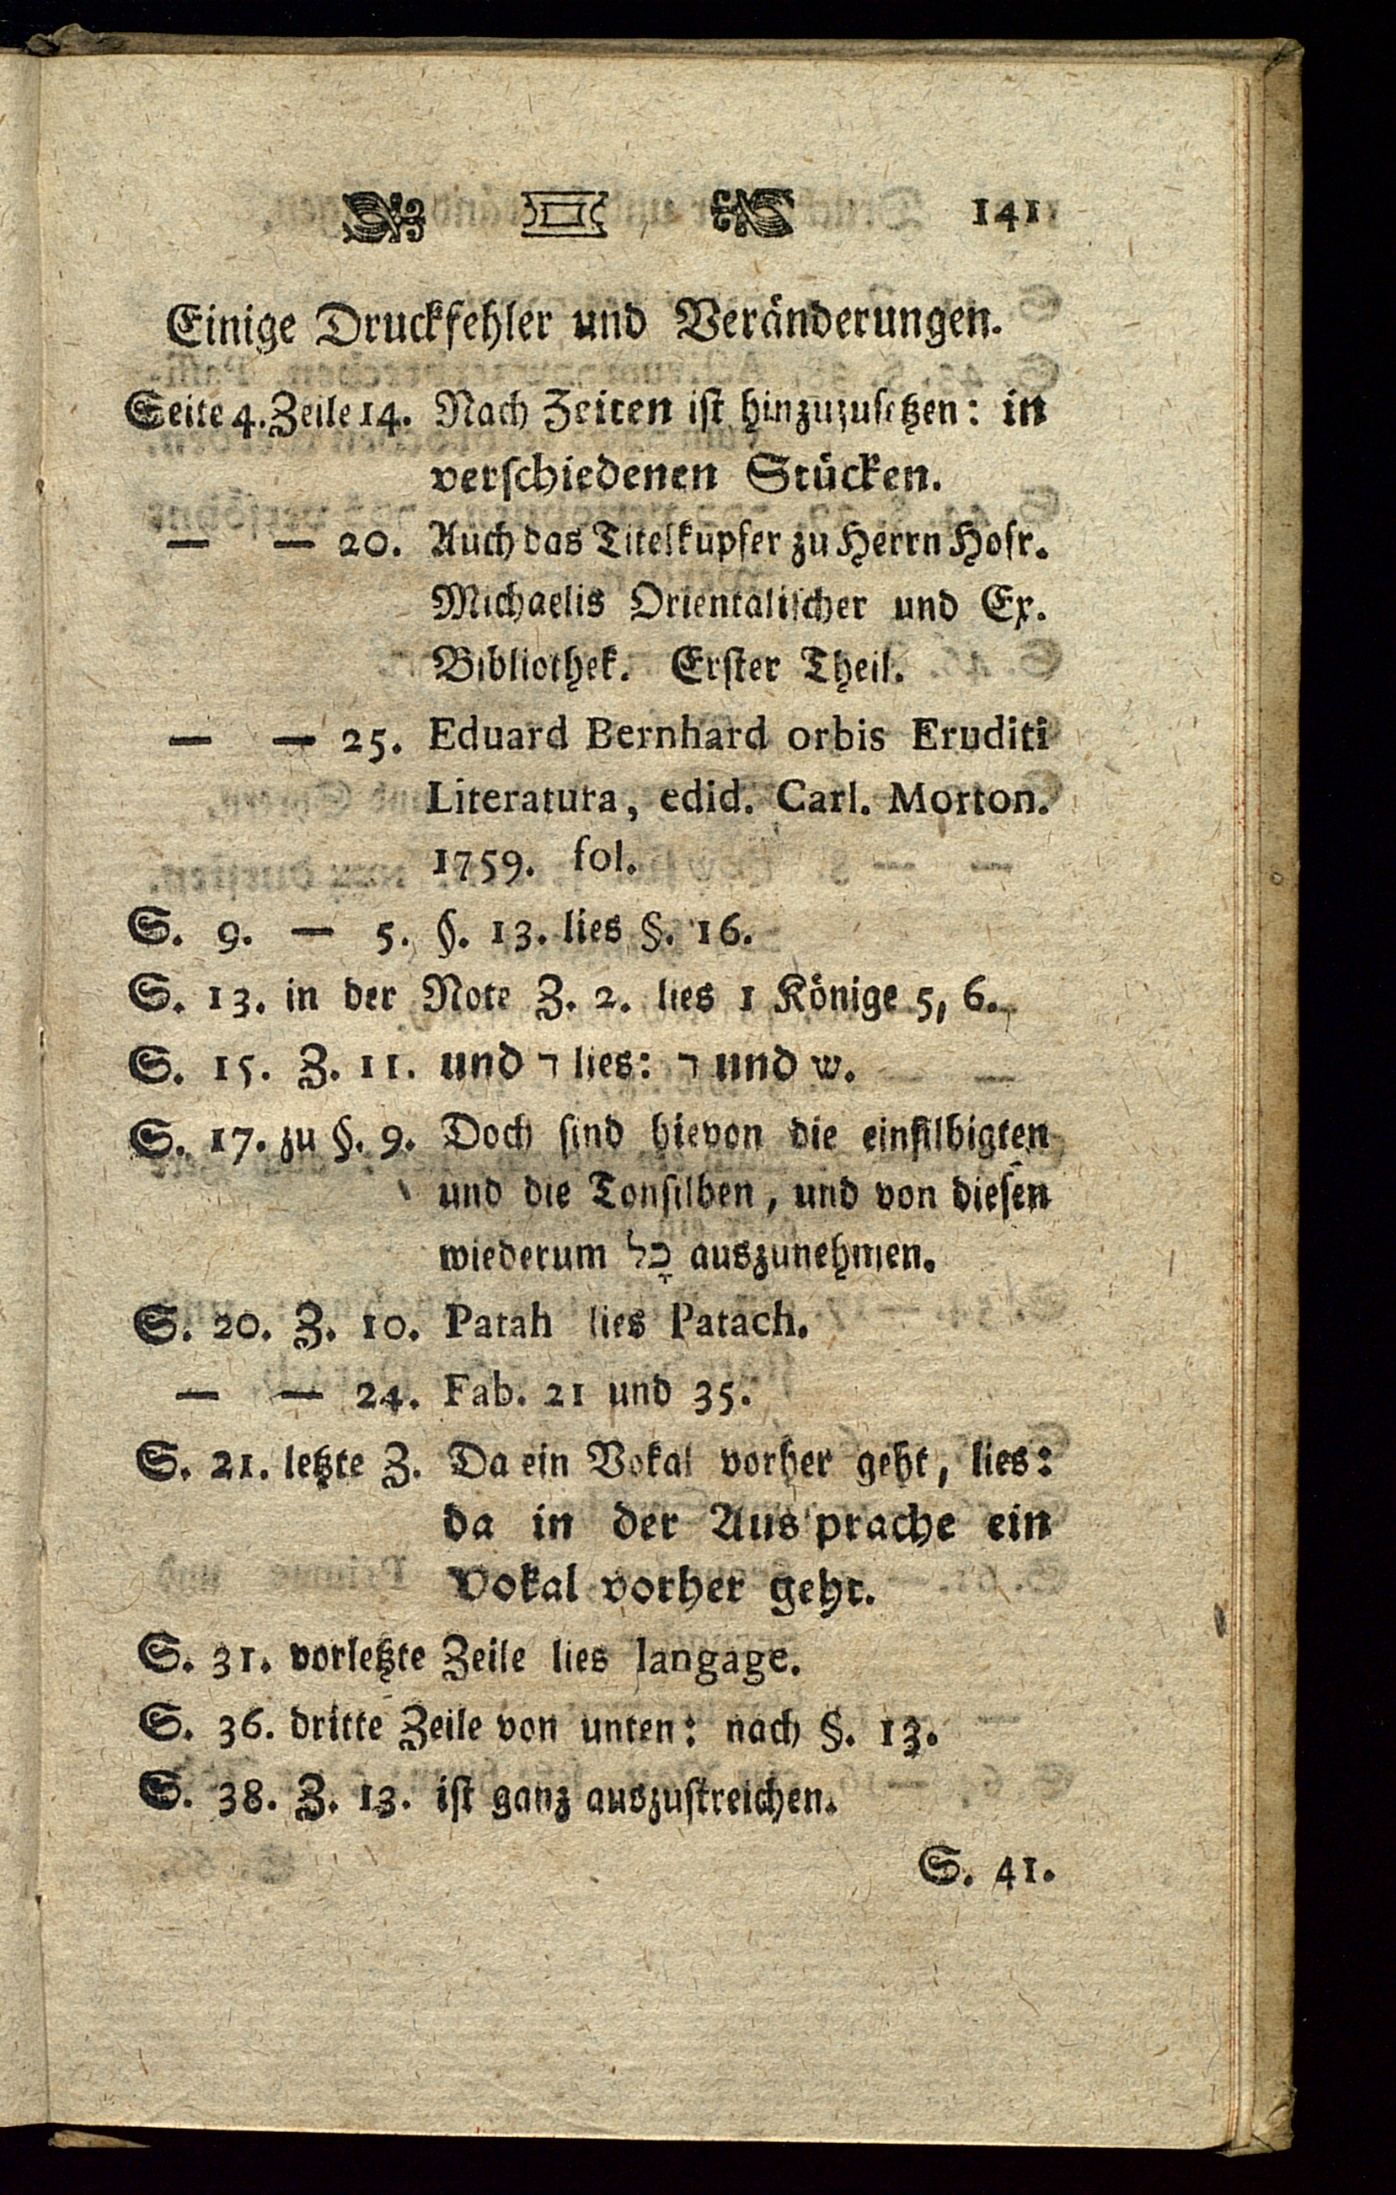 141
Einige Druckfehler und Veränderungen.
Seite 4. Zeile 14. Nach Zeiten ist hinzuzusetzen: in
verschiedenen Stücken.
— — 20. Auch das Titelkupfer zu Herrn Hofr.
Michaelis Orientalischer und Ex.
Bibliothek. Erster Theil.
— — 25. Eduard Bernhard orbis Eruditi
Literatura, edid. Carl. Morton.
1759. fol.
S. 9. — 5. §. 13. lies §. 16.
S. 13. in der Note Z. 2. lies 1 Könige 5, 6.
S. 15. Z. 11. und ד lies: ר und ש.
S. 17. zu §. 9. Doch sind hievon die einsilbigten
und die Tonsilben, und von diesen
wiederum כָל auszunehmen.
S. 20. Z. 10. Patah lies Patach.
— — 24. Fab. 21 und 35.
S. 21. letzte Z. Da ein Vokal vorher geht, lies:
da in der Aussprache ein
Vokal vorher geht.
S. 31. vorletzte Zeile lies langage.
S. 36. dritte Zeile von unten: nach §. 13.
S. 38. Z. 13. ist ganz auszustreichen.
S. 41.